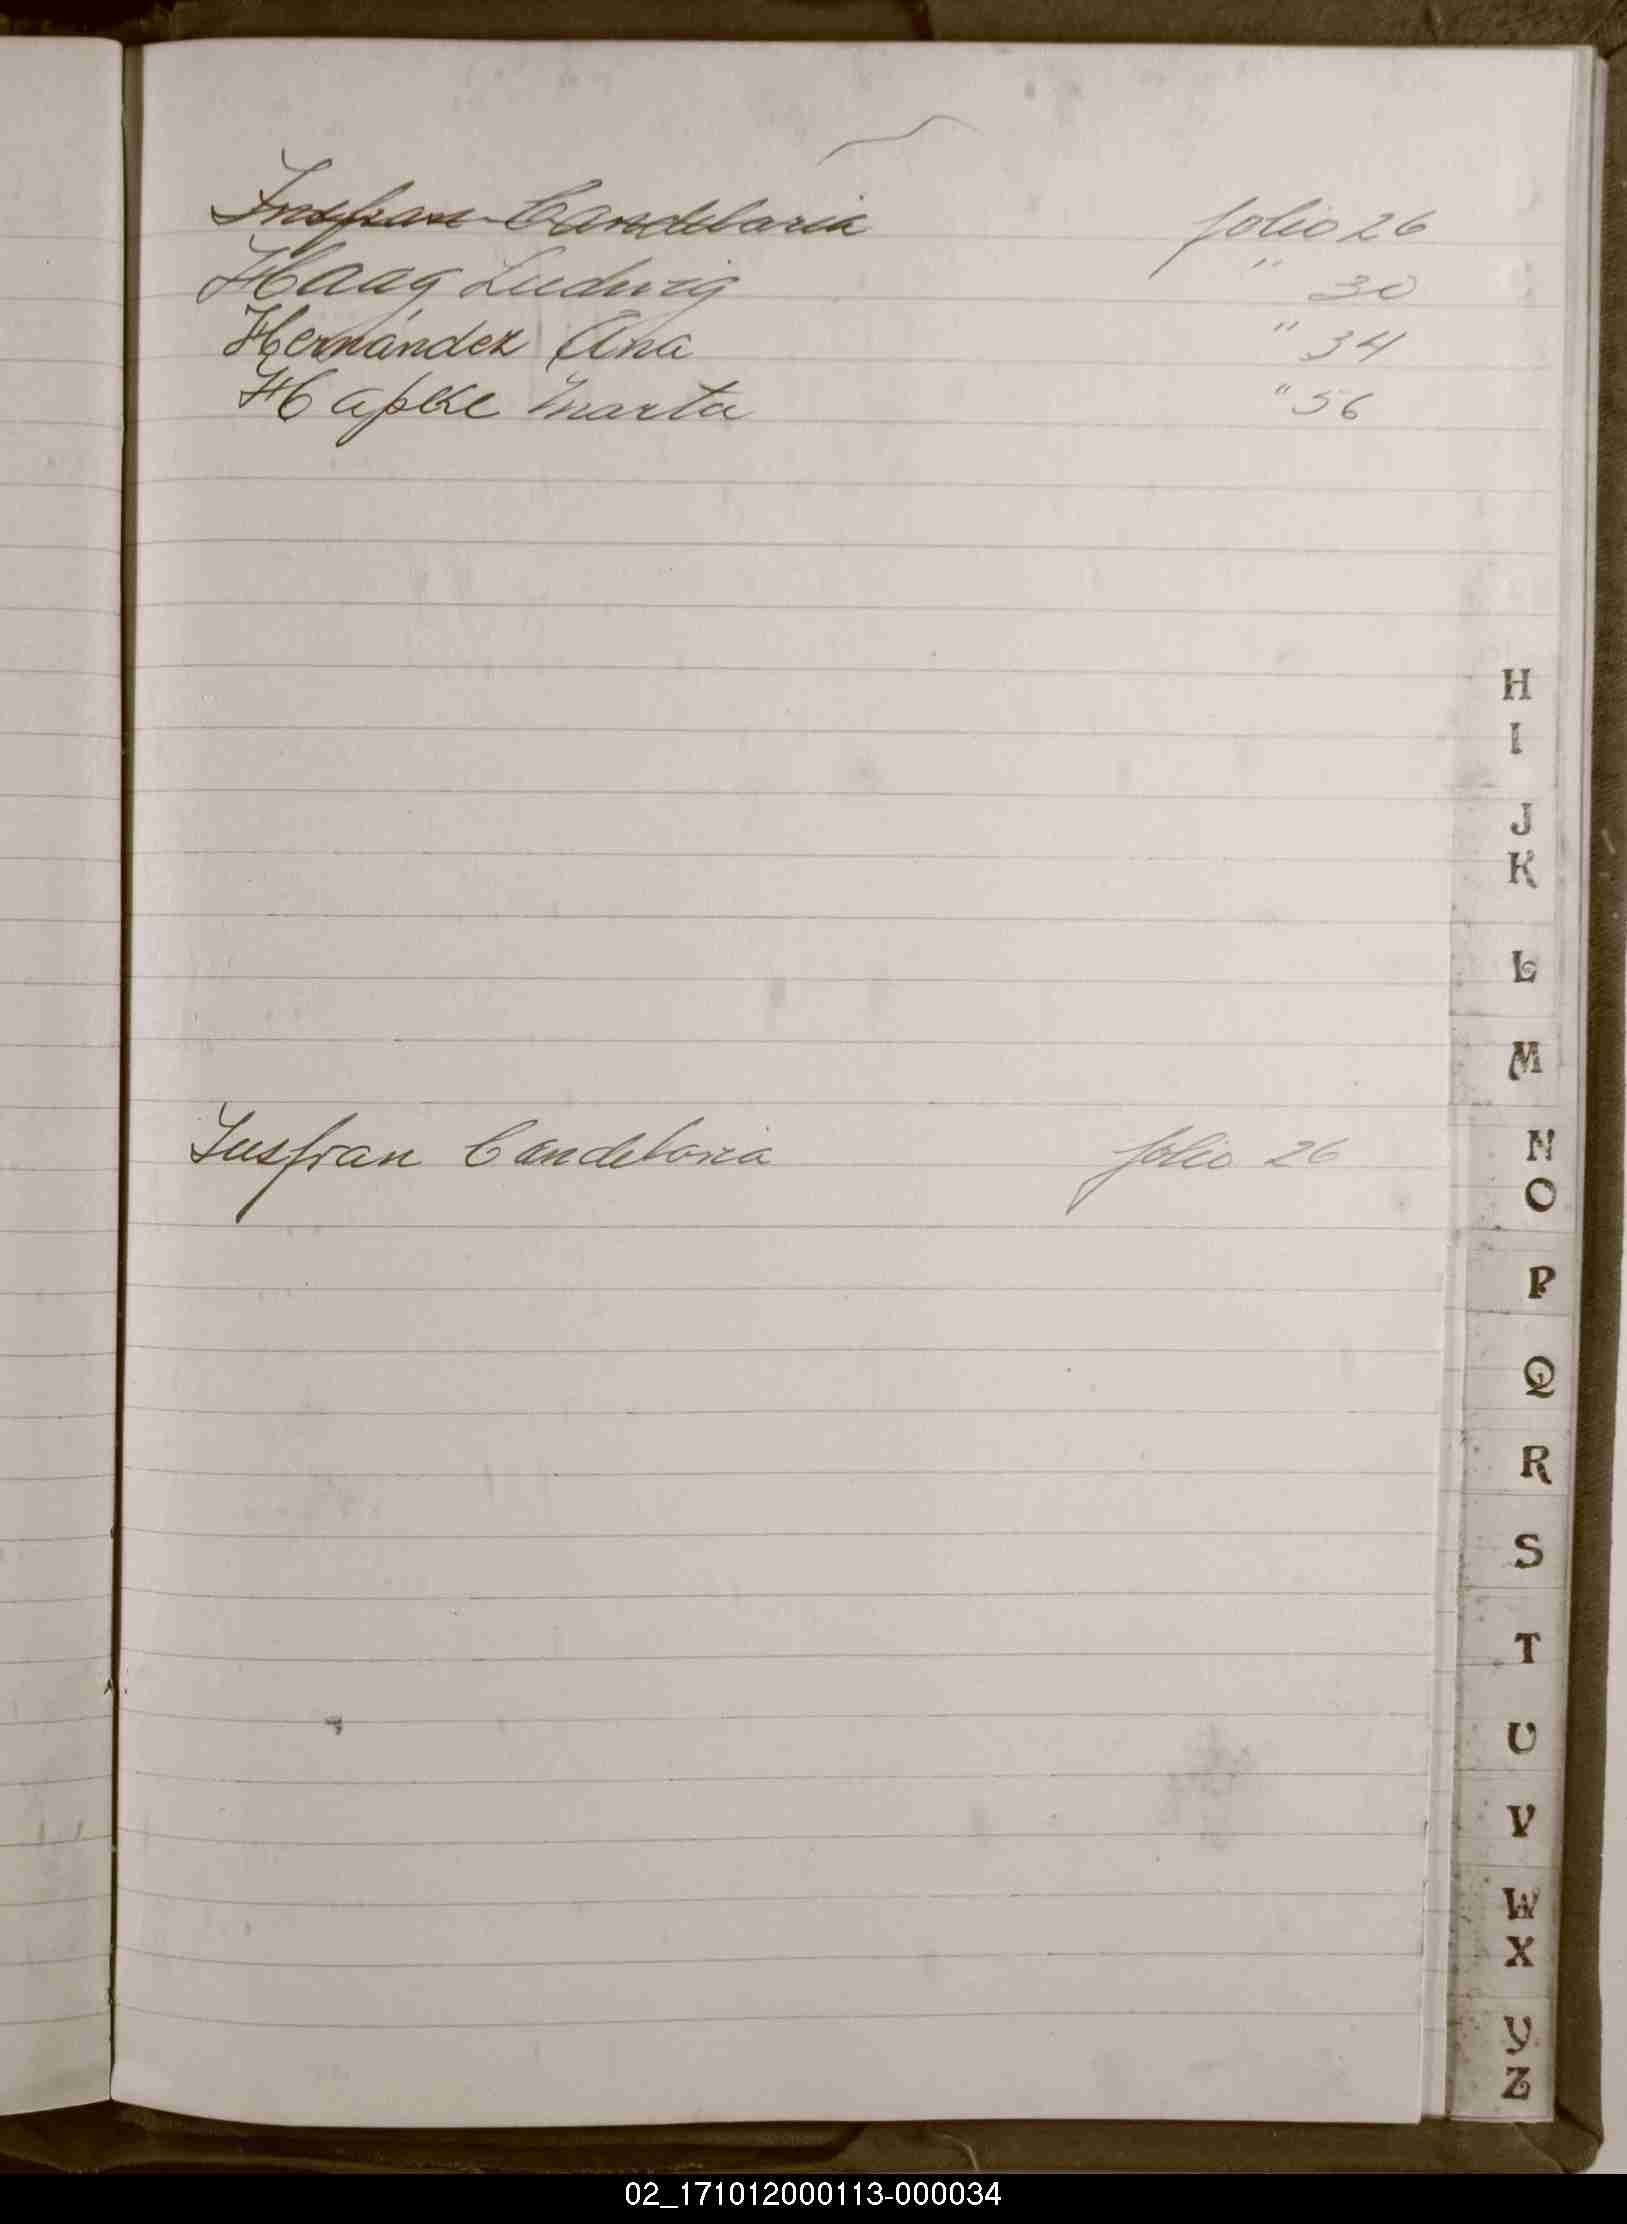 Insfran Candelaria folio 26
Haag Ludwig " 30
Hernández Ana " 34
Hapke Marta " 56
H
I
J
K
L
M
Insfran Candelaria folio 26
N
O
P
Q
R
S
T
U
V
W
X
Y
Z
02_171012000113-000034